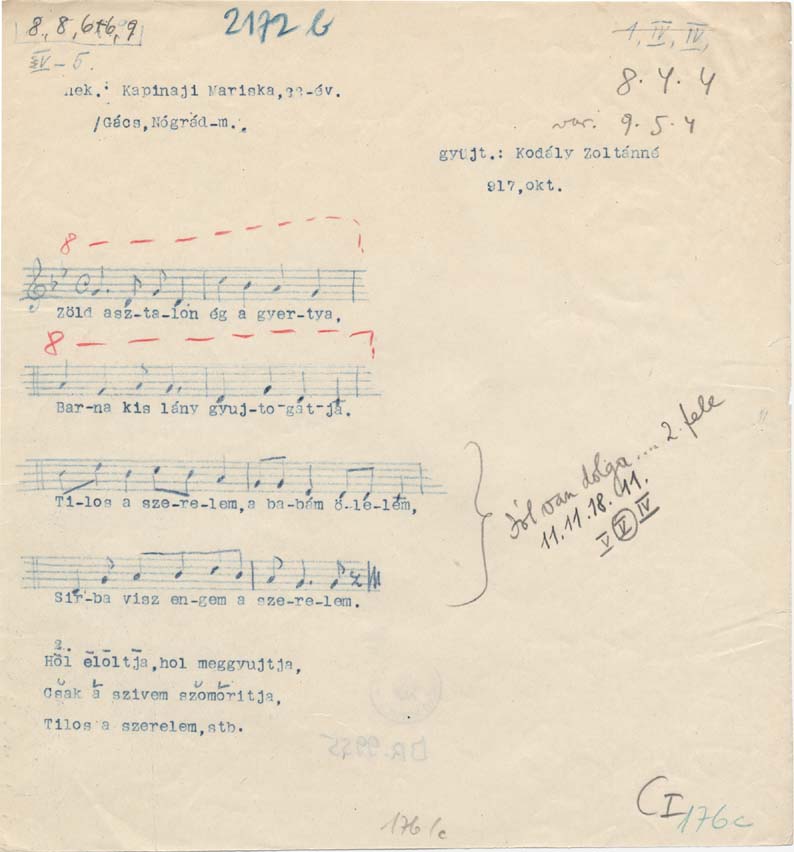 8, 8, 6+6, 9
2172 b
1, IV, IV,
IV-5.
8. 4. 4
nek.: Kapinaji Mariska, -év.
/Gács,Nógrád-m.
var. 9. 5. 4
gyüjt.: Kodály Zoltánné
917,okt.
8
Zöld asz-ta-lon ég a gyer-tya,
8
Bar-na kis lány gyuj-to-gat-ja.
Ti-los a sze-re-lem,a ba-bám ö-le-lem,
Jól van dolga ... 2. fele
11. 11. 18. 11.
V V IV
Sir-ba visz en-gem a sze-re-lem.
2.
Hol eloltja,hol meggyujtja,
Csak a szivem szomoritja,
Tilos a szerelem,stb.
BR.9955
CI 176c
176/c